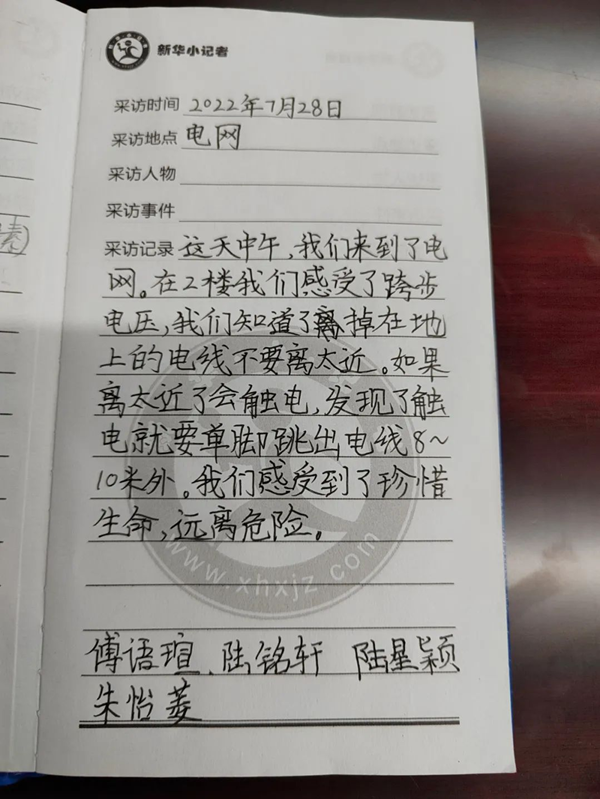 新华小记者
采访时间 2022年7月28日
采访地点 电网
采访人物
采访事件
采访记录 这天中午,我们来到了电
网。在2楼我们感受了跨步
电压,我们知道了离掉在地
上的电线不要离太近。如果
离太近了会触电,发现了触
电就要单脚跳出电线8~
10米外。我们感受到了珍惜
生命,远离危险。
www.xhxjz.com
傅语瑄、陆铭轩 陆星颖
朱怡菱